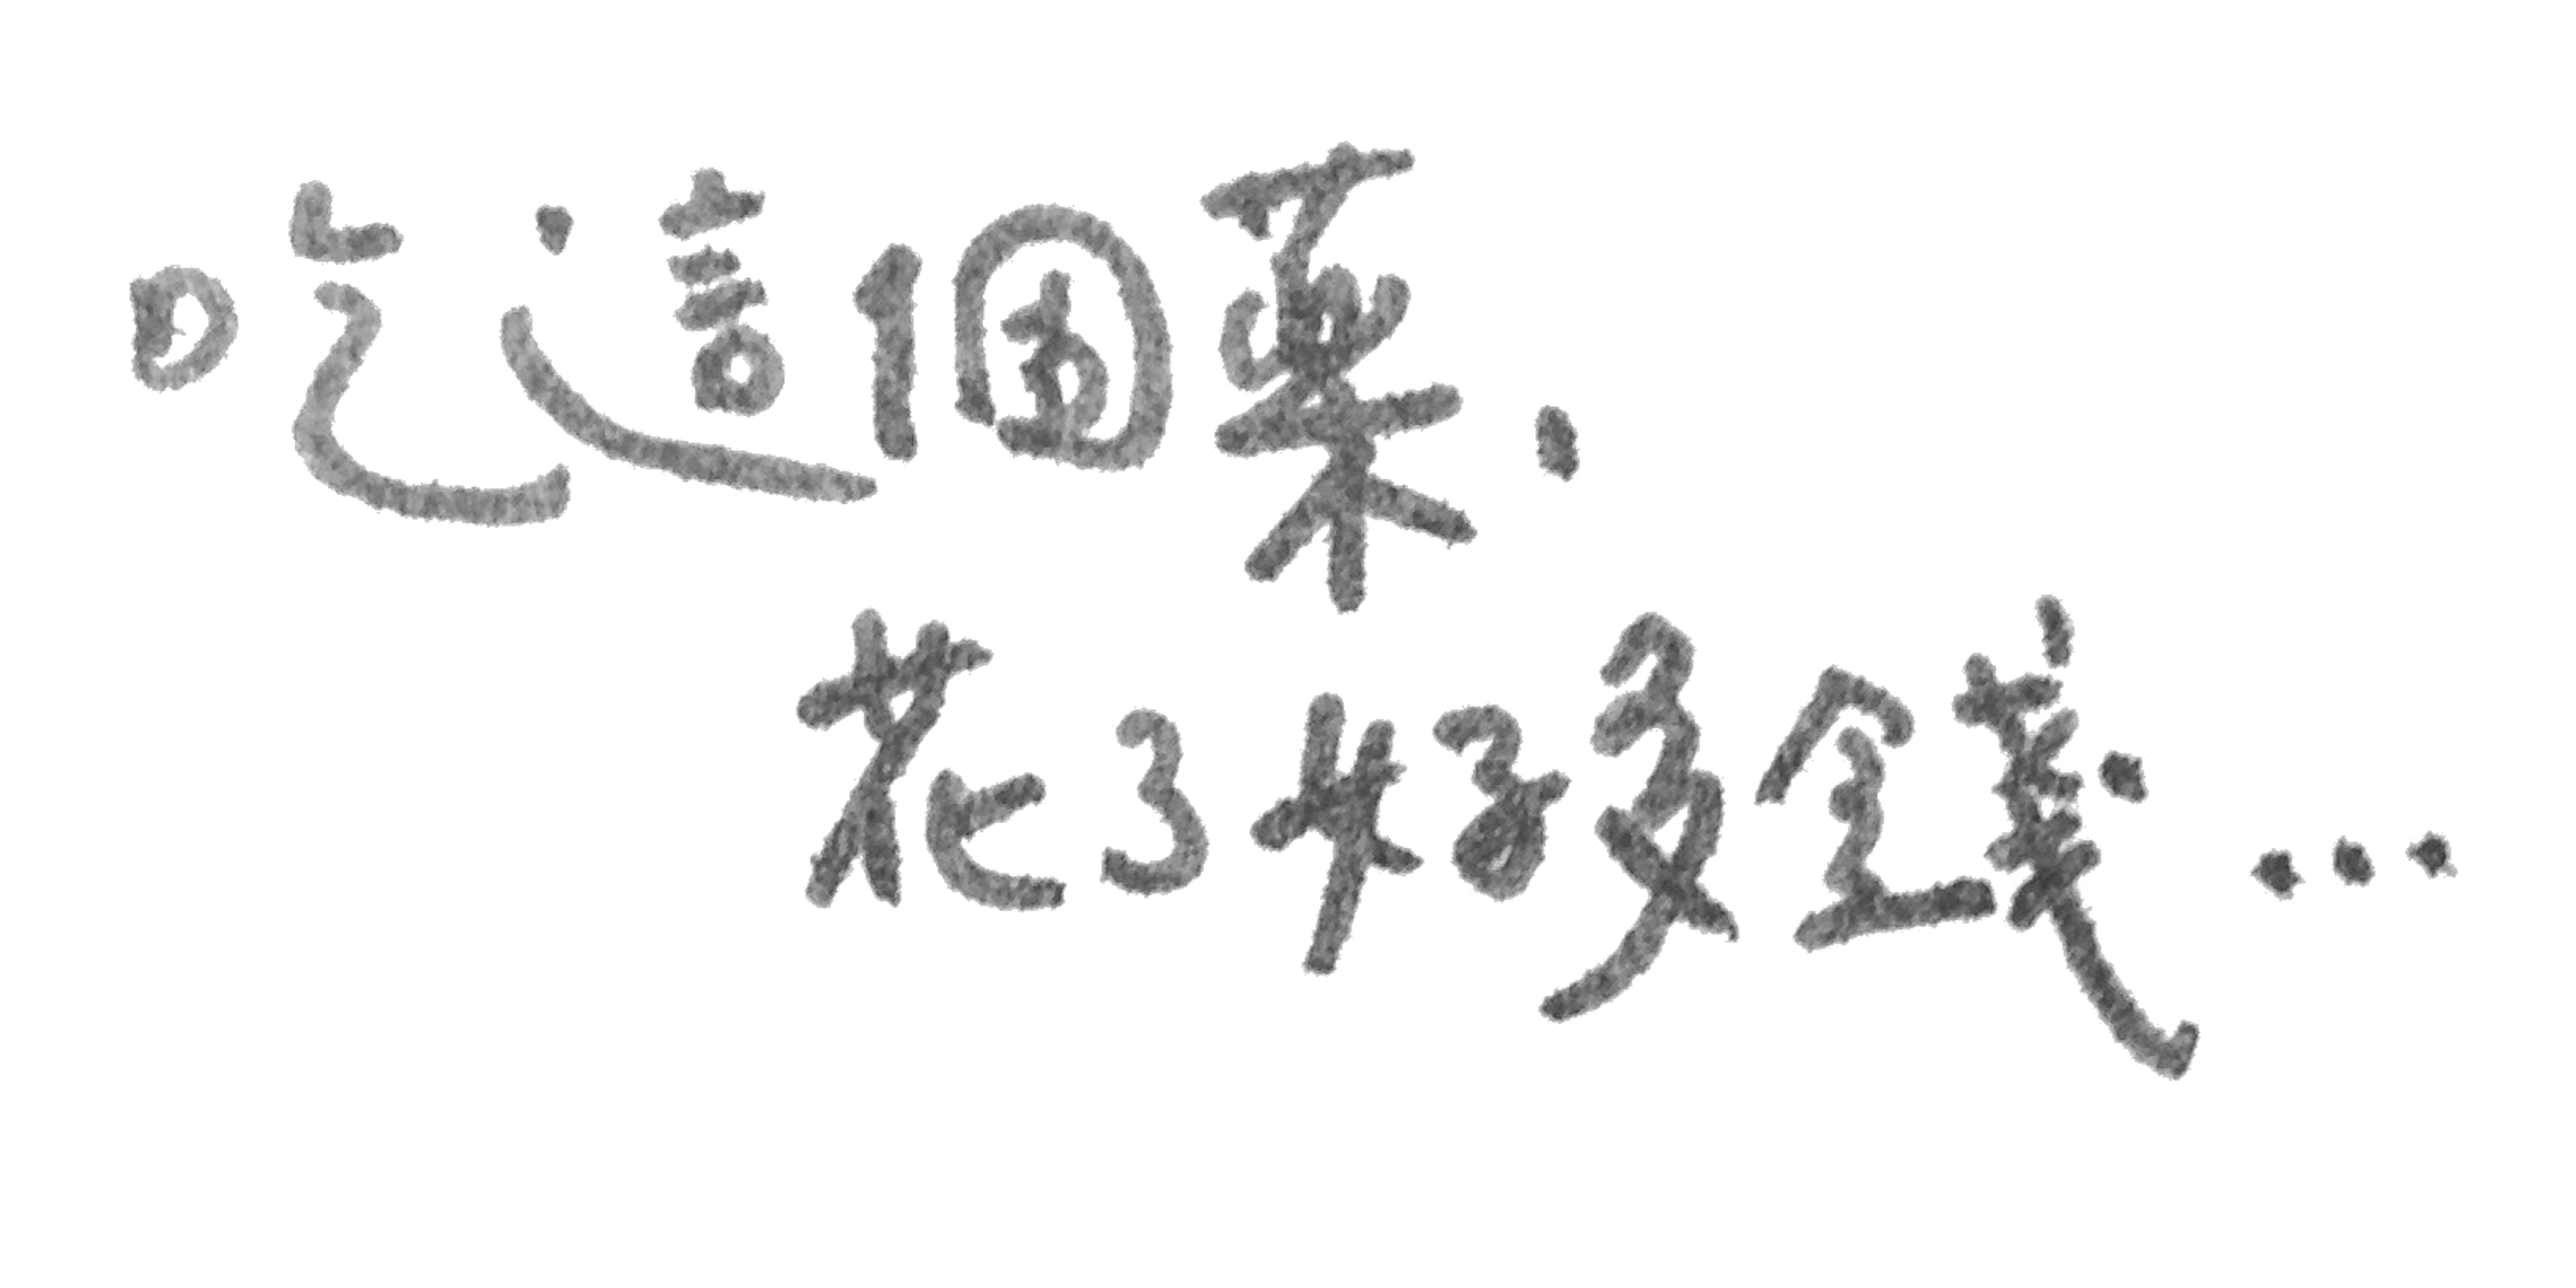 吃這個藥，
花了好多錢...